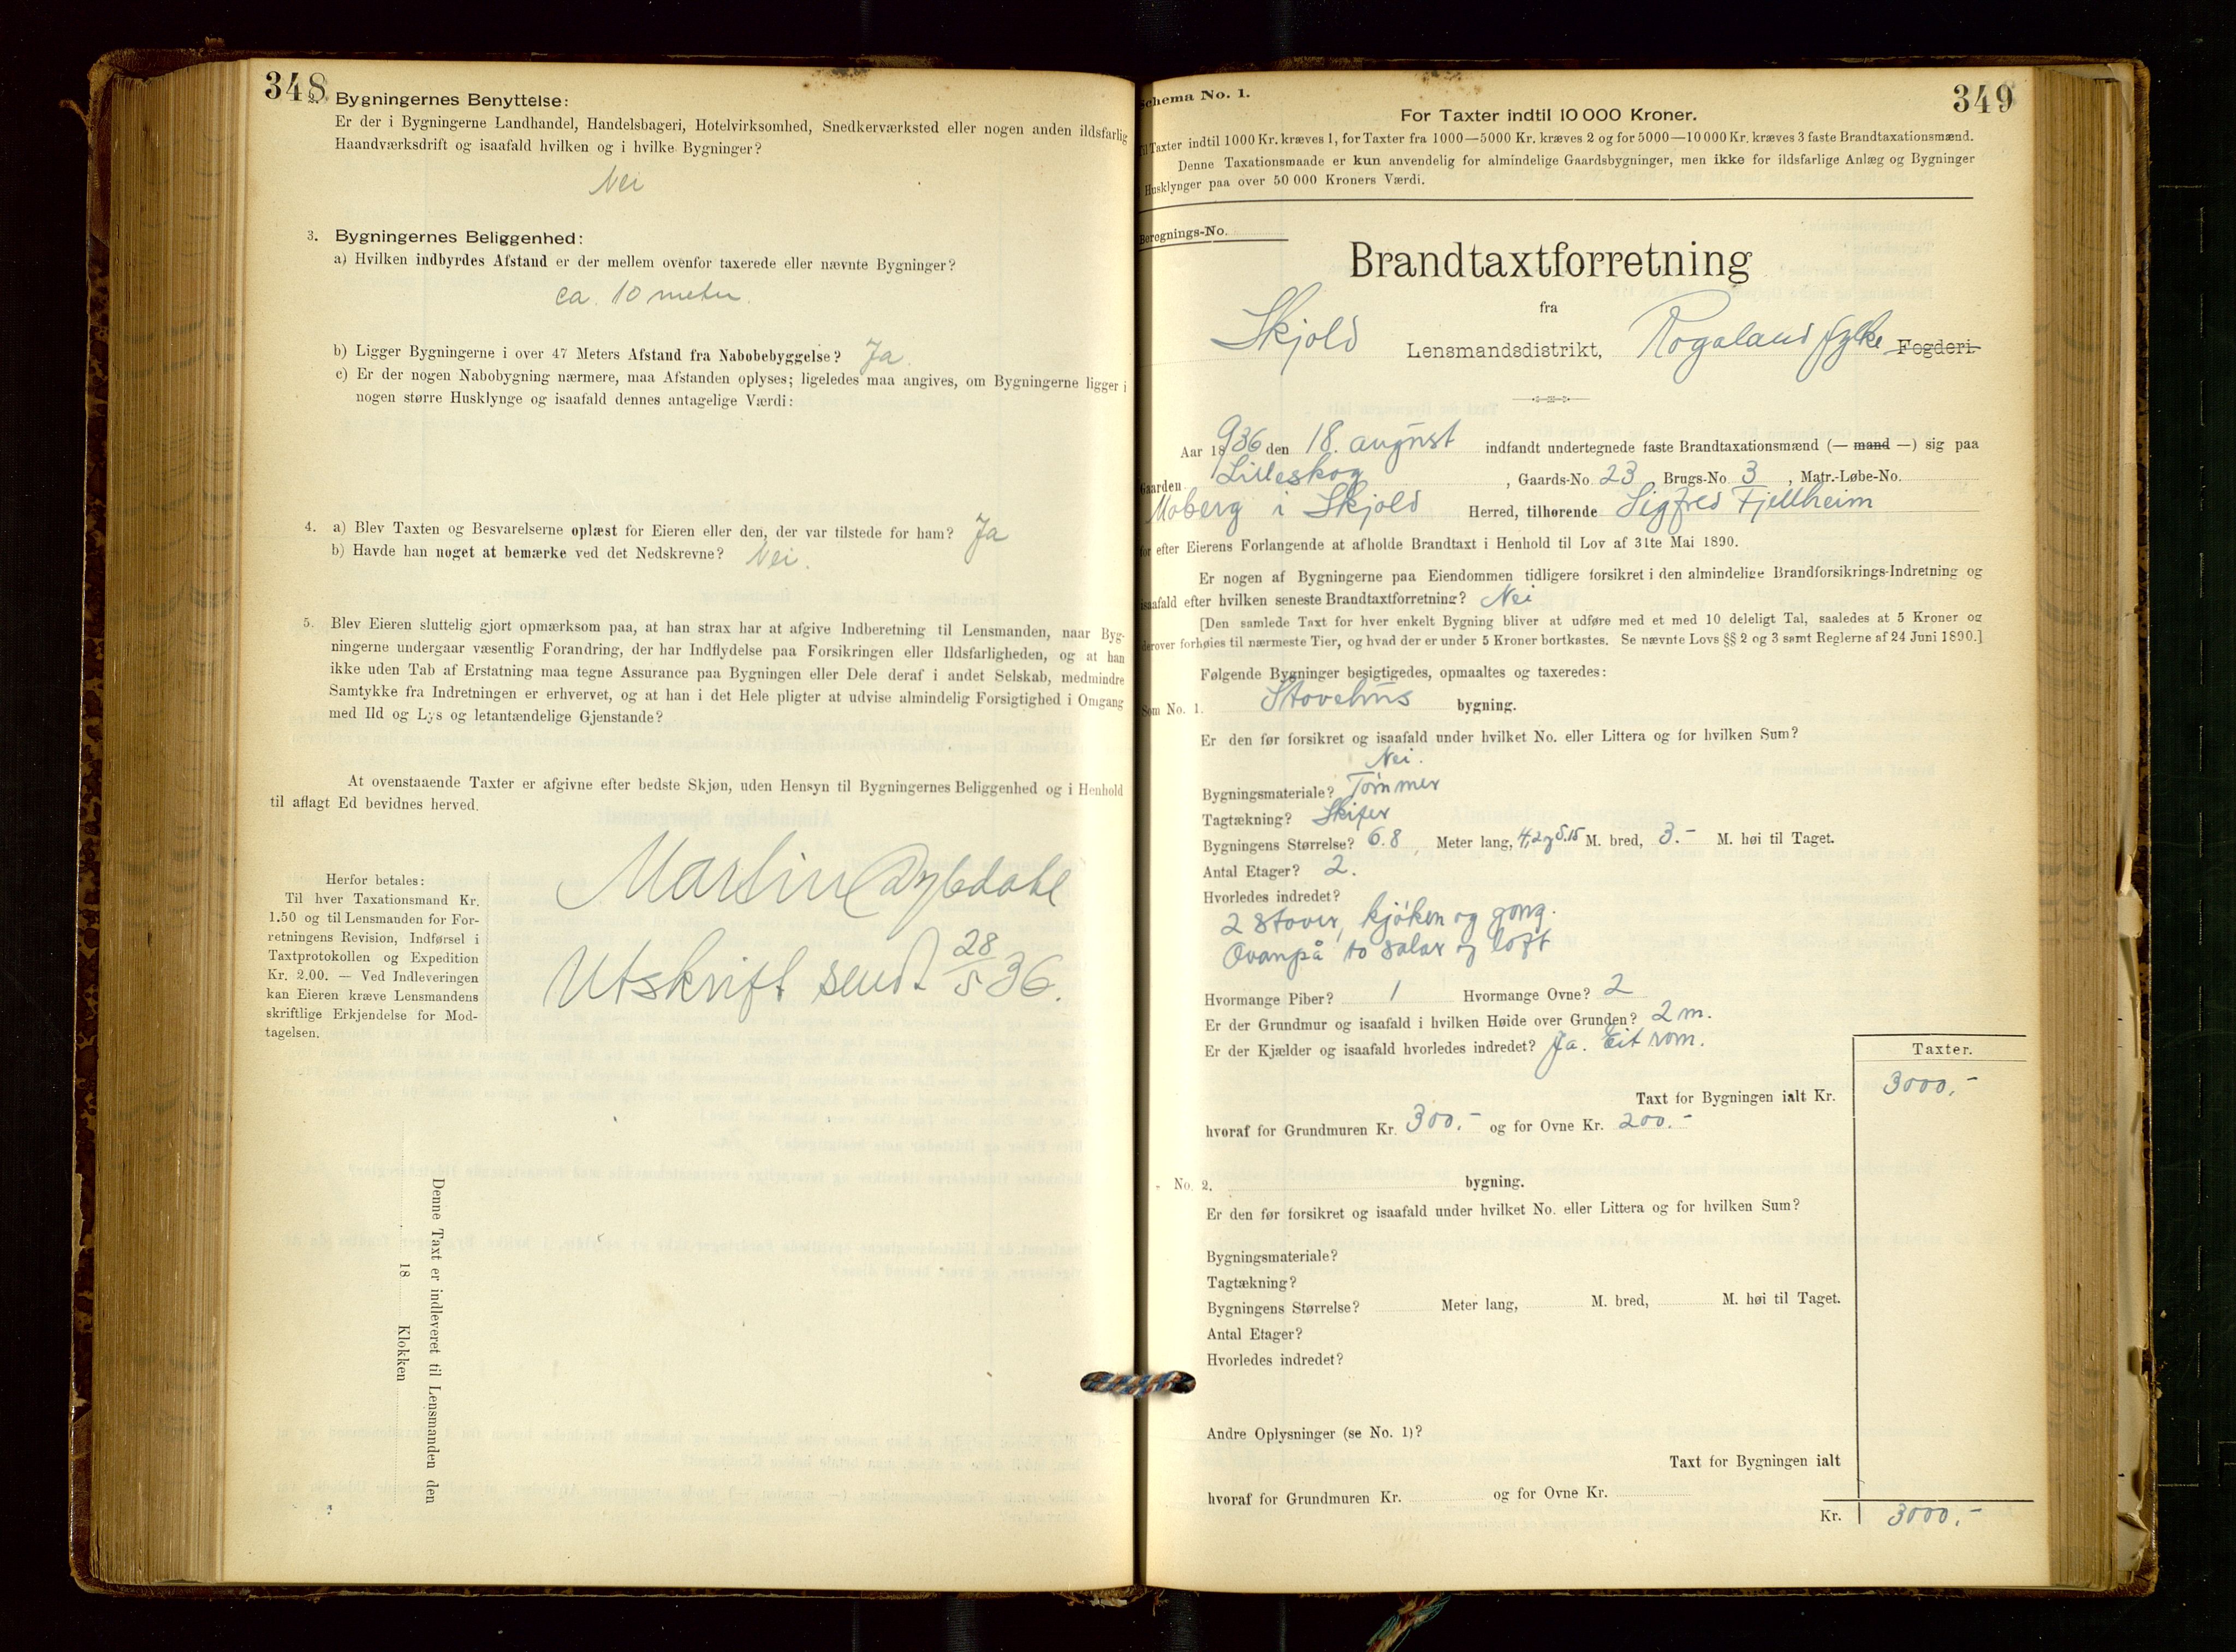 348
2. Bygningernes Benyttelse:
Er der i Bygningerne Landhandel, Handelsbageri, Hotelvirksomhed, Snedkerværksted eller nogen anden ildsfarlig
Haandværksdrift og isaafald hvilken og i hvilke Bygninger?
Nei
3. Bygningernes Beliggenhed:
a) Hvilken indbyrdes Afstand er der mellem ovenfor taxerede eller nævnte Bygninger?
ca. 10 meter.
b) Ligger Bygningerne i over 47 Meters Afstand fra Nabobebyggelse? Ja.
c) Er der nogen Nabobygning nærmere, maa Afstanden oplyses; ligeledes maa angives, om Bygningerne ligger i
nogen større Husklynge og isaafald dennes antagelige Værdi:
4. a) Blev Taxten og Besvarelserne oplæst for Eieren eller den, der var tilstede for ham? Ja
b) Havde han noget at bemærke ved det Nedskrevne? Nei.
5. Blev Eieren sluttelig gjort opmærksom paa, at han strax har at afgive Indberetning til Lensmanden, naar Byg-
ningerne undergaar væsentlig Forandring, der har Indflydelse paa Forsikringen eller Ildsfarligheden, og at han
ikke uden Tab af Erstatning maa tegne Assurance paa Bygningen eller Dele deraf i andet Selskab, medmindre
Samtykke fra Indretningen er erhvervet, og at han i det Hele pligter at udvise almindelig Forsigtighed i Omgang
med Ild og Lys og letantændelige Gjenstande?
At ovenstaaende Taxter er afgivne efter bedste Skjøn, uden Hensyn til Bygningernes Beliggenhed og i Henhold
til aflagt Ed bevidnes herved.
Martin
Utskrift sendt 28/5 36.
Herfor betales:
Til hver Taxationsmand Kr.
1.50 og til Lensmanden for For-
retningens Revision, Indførsel i
Taxtprotokollen og Expedition
Kr. 2.00. — Ved Indleveringen
kan Eieren kræve Lensmandens
skriftlige Erkjendelse for Mod-
tagelsen.
Denne Taxt er indleveret til Lensmanden den
18 Klokken
349
Schema No. 1.
For Taxter indtil 10 000 Kroner.
Til Taxter indtil 1000 Kr. kræves 1, for Taxter fra 1000—5000 Kr. kræves 2 og for 5000—10 000 Kr. kræves 3 faste Brandtaxationsmænd.
Denne Taxationsmaade er kun anvendelig for almindelige Gaardsbygninger, men ikke for ildsfarlige Anlæg og Bygninger
i Husklynger paa over 50 000 Kroners Værdi.
Beregnings-No.
Brandtaxtforretning
fra
Skjold Lensmandsdistrikt, Rogaland fylke Fogderi
Aar 18936 den 18. august indfandt undertegnede faste Brandtaxationsmænd (— mand —) sig paa
Gaarden Lilleskog, Gaards-No 23 Brugs-No 3, Matr.-Løbe-No.
Moberg i Skjold Herred, tilhørende Sigfred Fjellheim
for efter Eierens Forlangende at afholde Brandtaxt i Henhold til Lov af 31te Mai 1890.
Er nogen af Bygningerne paa Eiendommen tidligere forsikret i den almindelige Brandforsikrings-Indretning og
isaafald efter hvilken seneste Brandtaxtforretning? Nei
[Den samlede Taxt for hver enkelt Bygning bliver at udføre med et med 10 deleligt Tal, saaledes at 5 Kroner og
derover forhøies til nærmeste Tier, og hvad der er under 5 Kroner bortkastes. Se nævnte Lovs §§ 2 og 3 samt Reglerne af 24 Juni 1890.]
Følgende Bygninger besigtigedes, opmaaltes og taxeredes:
Som No. 1. Stovehus bygning.
Er den før forsikret og isaafald under hvilket No. eller Littera og for hvilken Sum?
Nei.
Bygningsmateriale? Tømmer
Tagtækning? Skifer
Bygningens Størrelse? 6.8, Meter lang, 4,2 og 5.15 M. bred, 3.- M. høi til Taget.
Antal Etager? 2.
Hvorledes indredet?
2 stover, kjøken og gong.
Ovanpå to salar og loft
Hvormange Piber? 1 Hvormange Ovne? 2
Er der Grundmur og isaafald i hvilken Høide over Grunden? 2 m.
Er der Kjælder og isaafald hvorledes indredet? Ja. Eit rom.
Taxter.
Taxt for Bygningen ialt Kr. 3000,-
hvoraf for Grundmuren Kr. 300.- og for Ovne Kr. 200.-
- No. 2. bygning.
Er den før forsikret og isaafald under hvilket No. eller Littera og for hvilken Sum?
Bygningsmateriale?
Tagtækning?
Bygningens Størrelse? Meter lang, M. bred, M. høi til Taget.
Antal Etager?
Hvorledes indredet?
Andre Oplysninger (se No. 1)?
Taxt for Bygningen ialt
hvoraf for Grundmuren Kr. og for Ovne Kr.
Kr. 3000,-